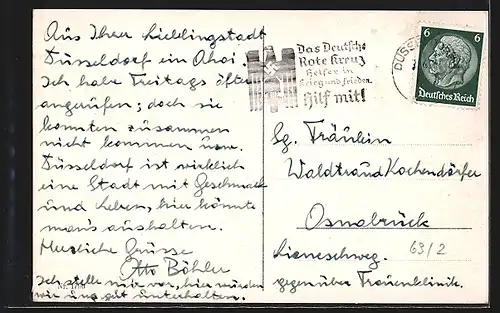 Aus Ihrer Lieblingsstadt
Düsseldorf ein Ahoi.
Ich habe Freitags öfter
angerufen; doch sie
konnten zusammen
nicht kommen usw.
Düsseldorf ist wirklich
eine Stadt mit Geschmack
und Leben, hier könnte
man's aushalten.
Herzliche Grüsse
Otto Böhler
Ich stelle mir vor, hier würden
wir uns gut unterhalten.
Das Deutsche
Rote Kreuz
Helfer in
Krieg und Frieden
Hilf mit!
DÜSSE
6 6
Deutsches Reich
Sg. Fräulein
Waldtraud Kochendörfer
Osnabrück
Lieneschweg. 63/2
gegenüber Frauenklinik.